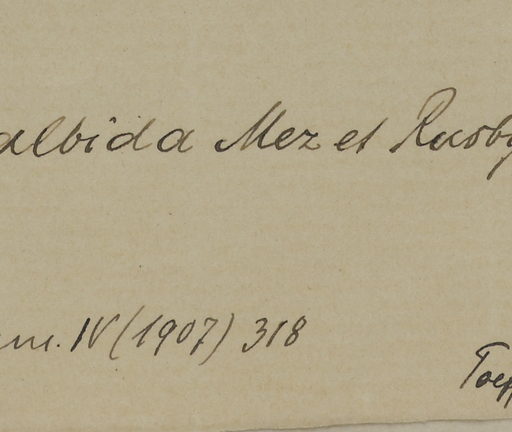 albida Mez et Rusby
um. IV (1907) 318
Toepf